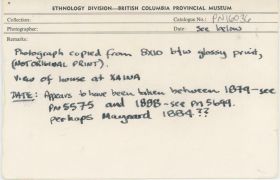 ETHNOLOGY DIVISION—BRITISH COLUMBIA PROVINCIAL MUSEUM
Collection: Catalogue No.: PN16036
Photographer: Date: See below
Remarks:
Photograph copied from 8X10 b/w glossy print,
(NOT ORIGINAL PRINT).
View of house at XAINA
DATE: Appears to have been taken between 1879-see
PN5575 and 1888-see PN5644.
perhaps Maynard 1884??